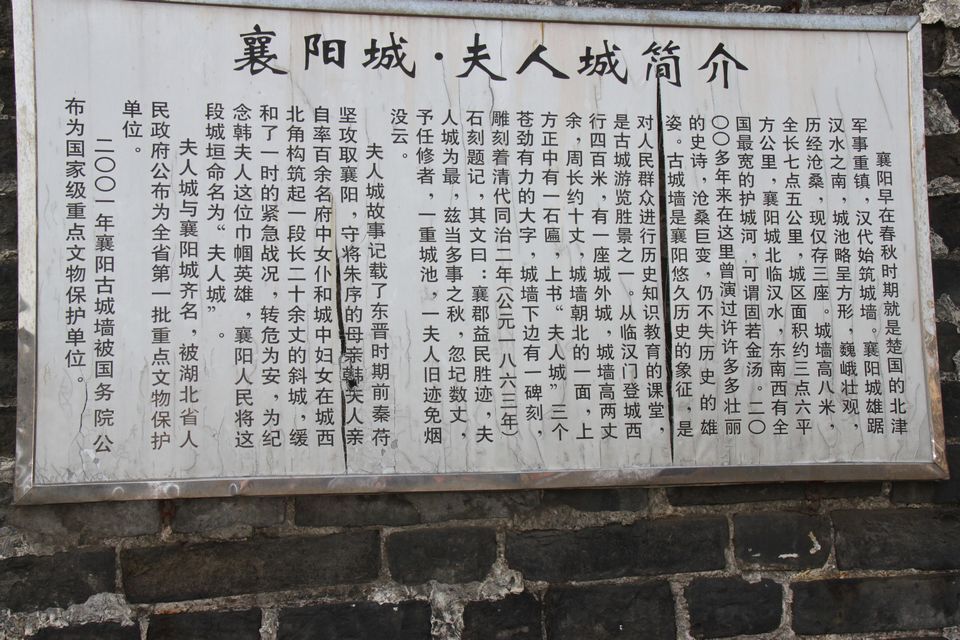 襄阳城·夫人城简介
襄阳早在春秋时期就是楚国的北津
军事重镇，汉代始筑城墙。襄阳城雄踞
汉水之南，城池略呈方形，巍峨壮观，
历经沧桑，现仅存三座。城墙高八米，
全长七点五公里，城区面积约三点六平
方公里，襄阳城北临汉水，东南西有全
国最宽的护城河，可谓固若金汤。二〇
〇〇多年来在这里曾演过许许多多壮丽
的史诗，沧桑巨变，仍不失历史的雄
姿。古城墙是襄阳悠久历史的象征，是
对人民群众进行历史知识教育的课堂，
是古城游览胜景之一。从临汉门登城西
行四百米，有一座城外城，城墙高两丈
余，周长约十丈，城墙朝北的一面，上
方正中有一石匾，上书“夫人城”三个
苍劲有力的大字，城墙下边有一碑刻，
雕刻着清代同治二年（公元一八六三年）
石刻题记，其文曰：襄郡益民胜迹，夫
人城为最，兹当多事之秋，忽圮数丈，
予任修者，一重城池，一夫人旧迹免烟
没云。
夫人城故事记载了东晋时期前秦苻
坚攻取襄阳，守将朱序的母亲韩夫人亲
自率百余名府中女仆和城中妇女在城西
北角构筑起一段长二十余丈的斜城，缓
和了一时的紧急战况，转危为安，为纪
念韩夫人这位巾帼英雄，襄阳人民将这
段城垣命名为“夫人城”。
夫人城与襄阳城齐名，被湖北省人
民政府公布为全省第一批重点文物保护
单位。
二〇〇一年襄阳古城墙被国务院公
布为国家级重点文物保护单位。